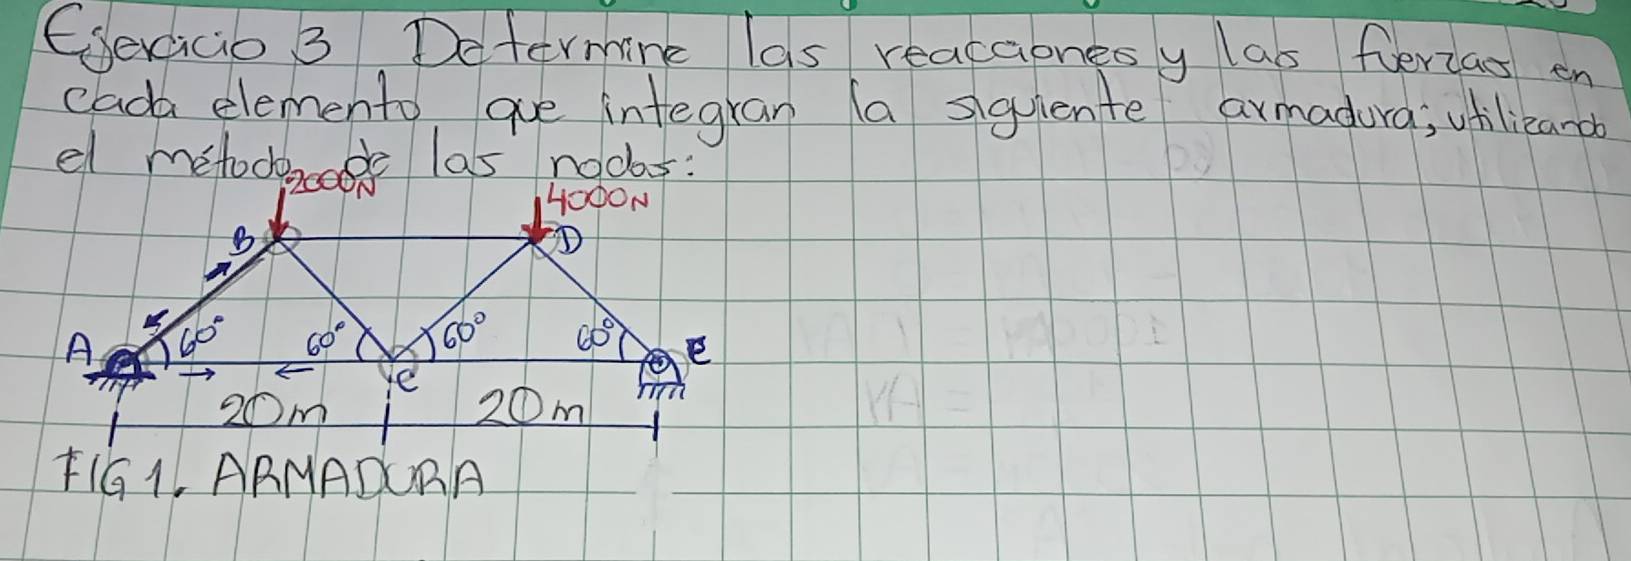 Ejercicio 3 Determine las reacciones y las fuerzas en
cada elemento que integran la siguiente armadura; utilizando
el método de las nodos:
2000N
4000N
B
D
A
60°
60°
60°
60°
E
C
20m
20m
FIG 1. ARMADURA